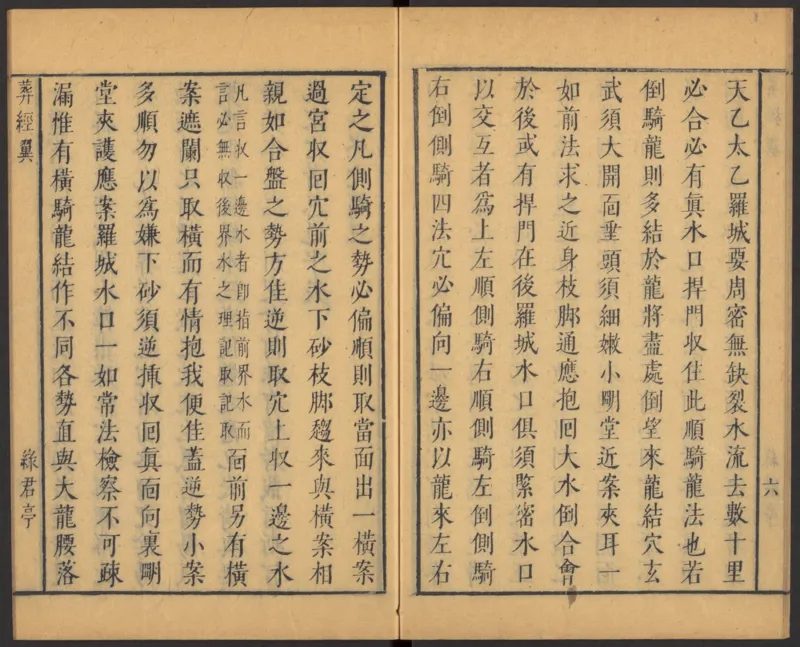 天乙太乙羅城要周密無缺裂水流去數十里
必合必有眞水口捍門収住此順騎龍法也若
倒騎龍則多結於龍將盡處倒望來龍結穴玄
武須大開面垂頭須細嫩小朙堂近案夾耳一
如前法求之近身枝脚通應抱囘大水倒合會
於後或有捍門在後羅城水口俱須緊密水口
以交互者爲上左順側騎右順側騎左倒側騎
右倒側騎四法穴必偏向一邊亦以龍來左右
六
定之凡側騎之勢必偏順則取當面出一橫案
過宮収囘穴前之水下砂枝脚趨來與橫案相
親如合盤之勢方佳逆則取穴上収一邊之水
凡言収一邊水者卽指前界水而
言必無収後界水之理記取記取
面前另有橫
案遮闌只取橫而有情抱我便佳蓋逆勢小案
多順勿以爲嫌下砂須逆揷収囘眞面向裏朙
堂夾護應案羅城水口一如常法檢察不可疎
漏惟有橫騎龍結作不同各勢直與大龍腰落
葬經翼
綠君亭